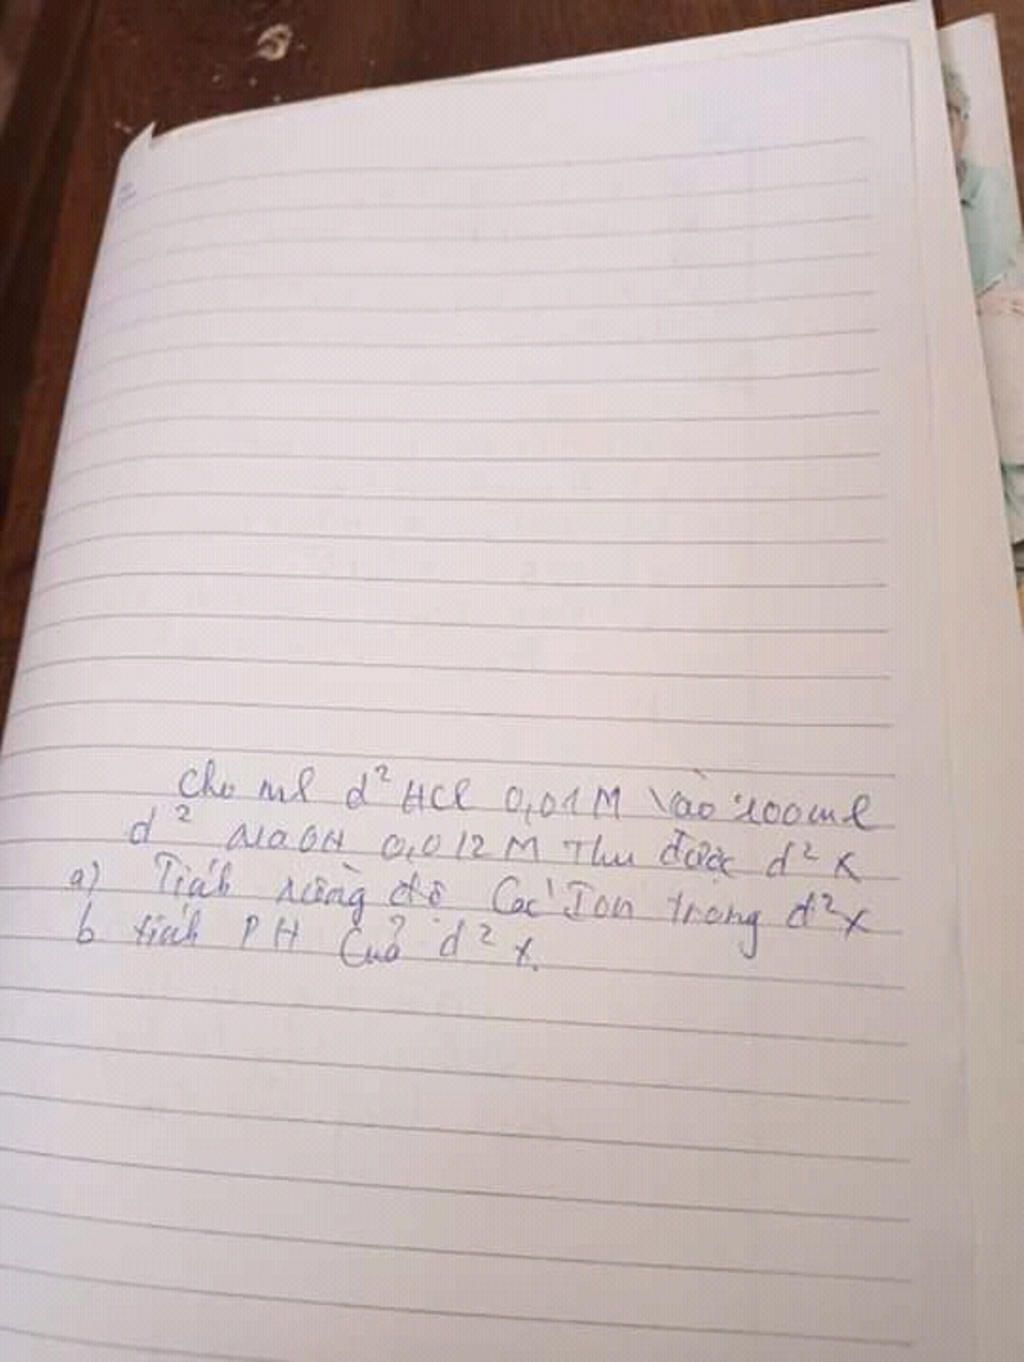 Cho ml d² HCl 0,01M vào 100ml
d² NaOH 0,012M Thu được d² X
a) Tính nồng độ Các Ion trong d² X
b tính PH Của d² X.